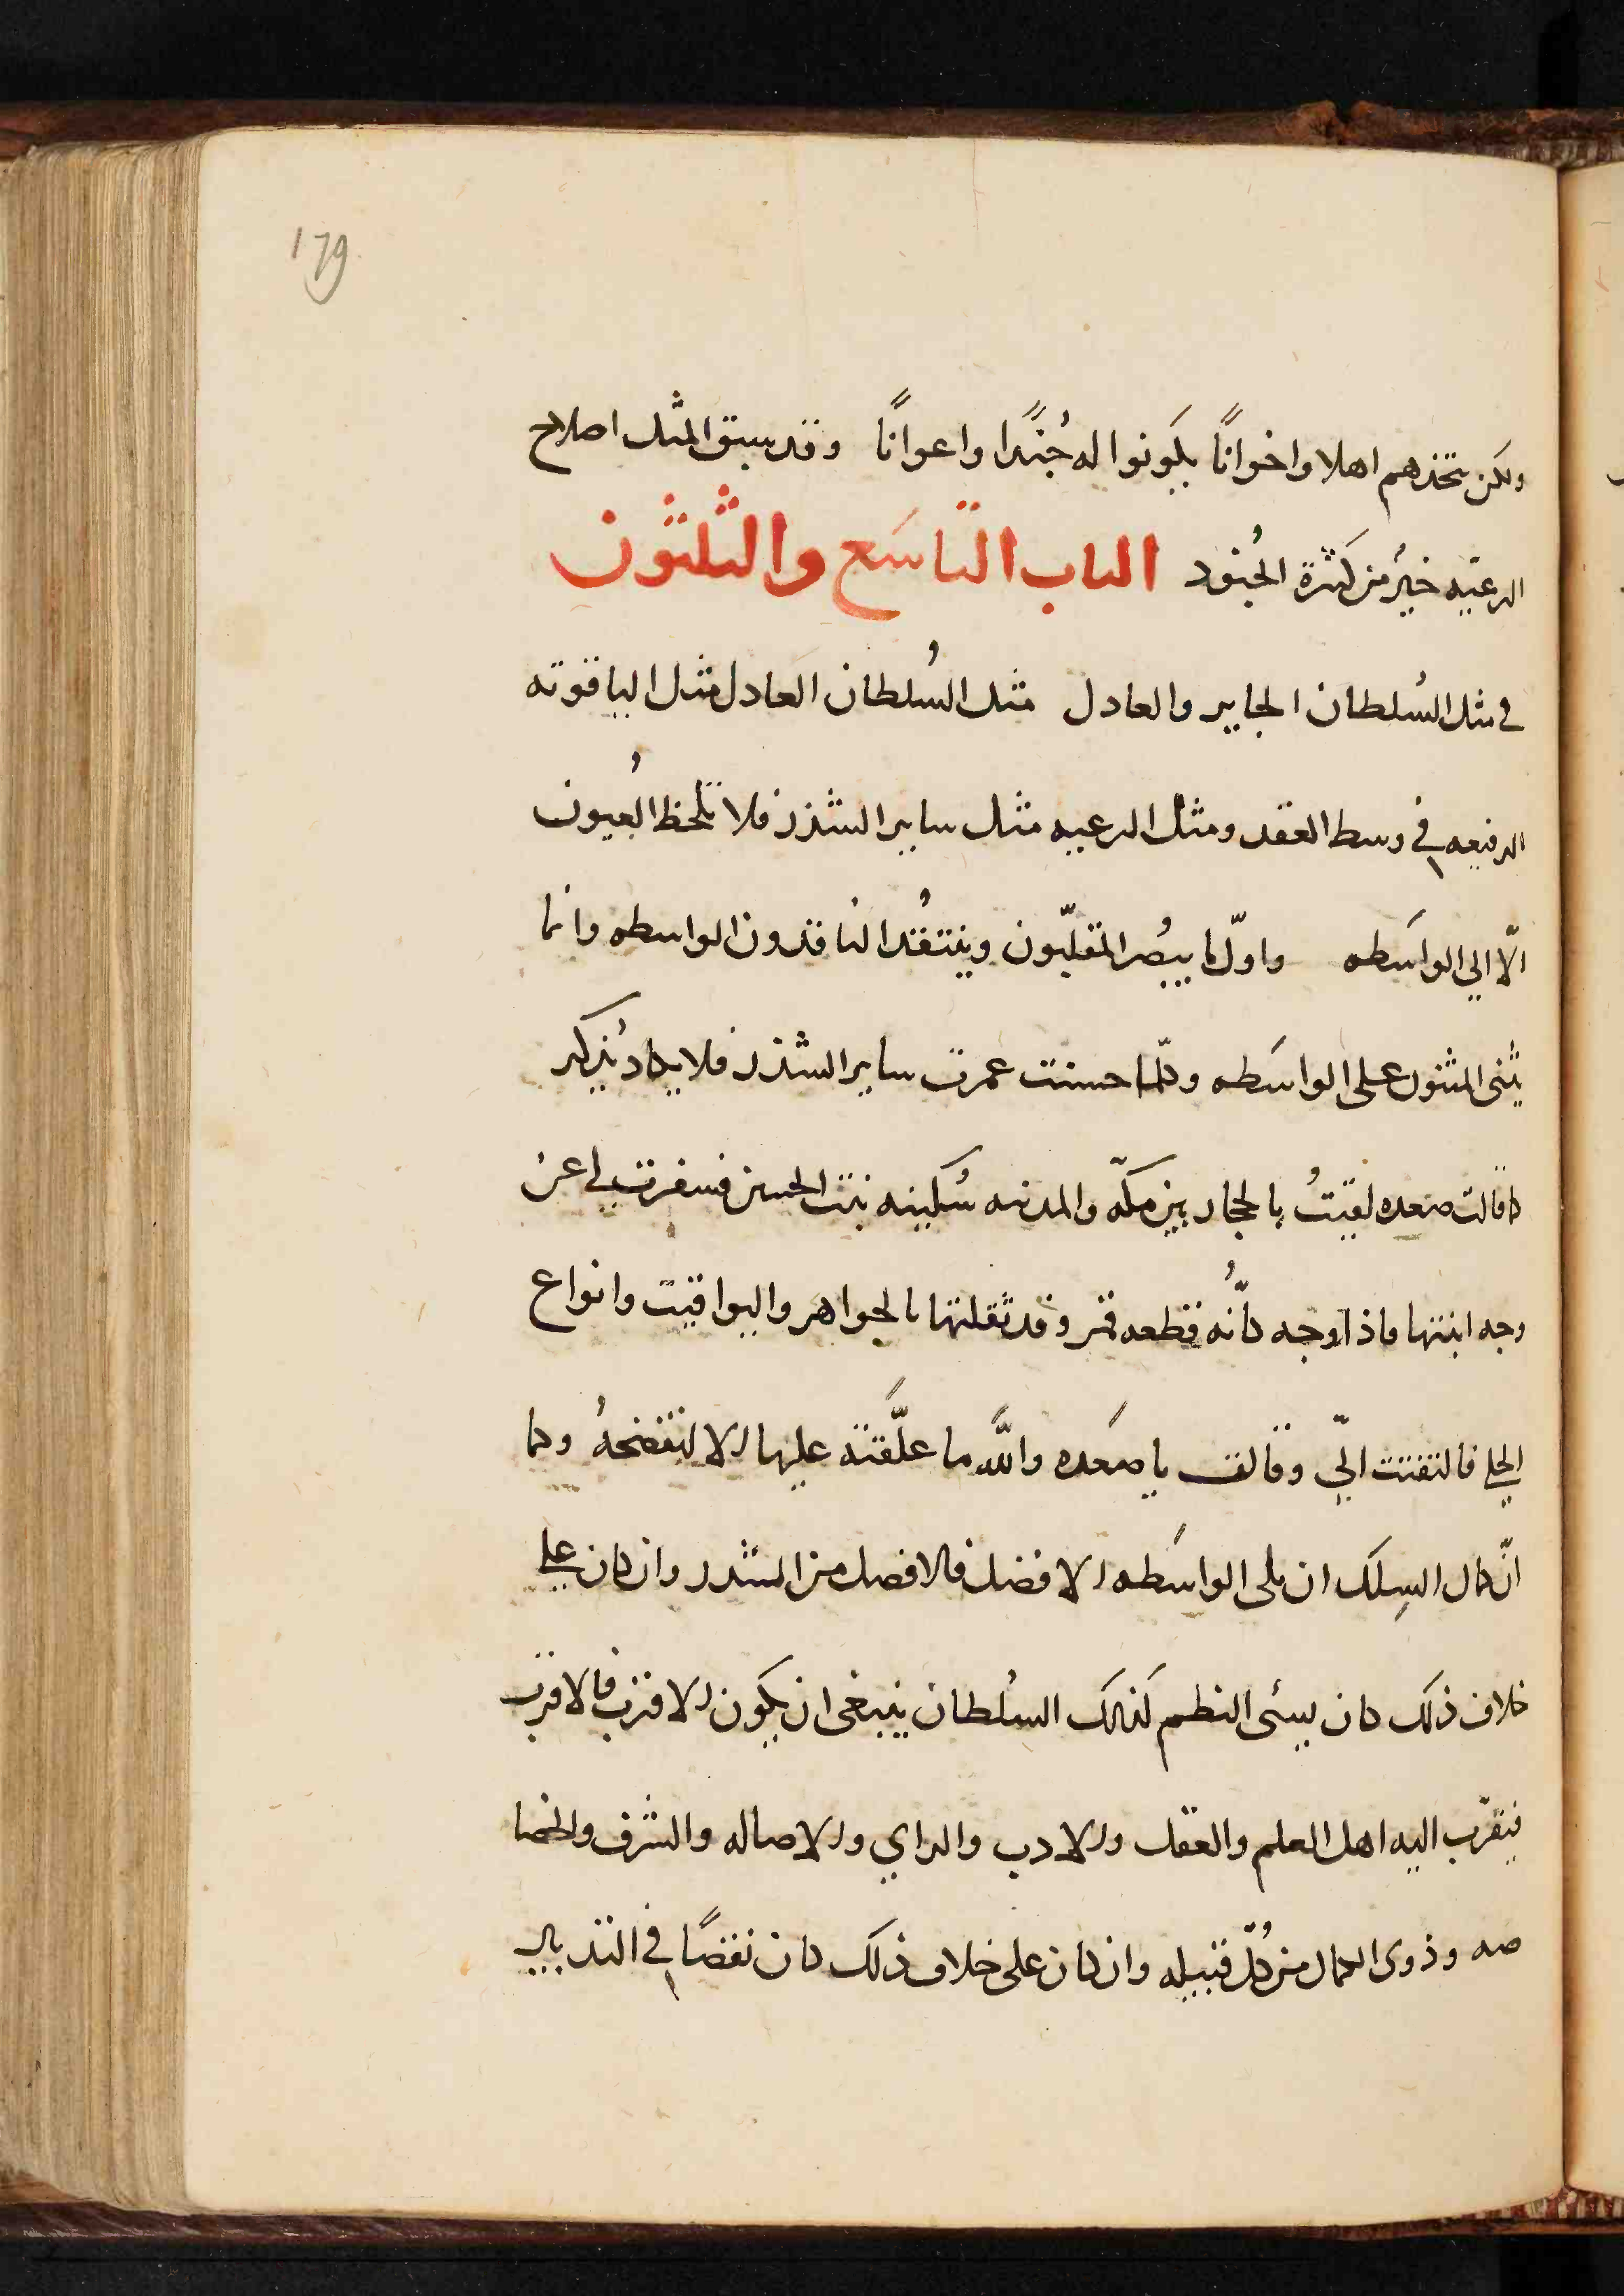 179
ولكن يتخذهم اهلا واخوانًا يكونوا له جُندًا واعوانًا وقد سبق المثل اصلاح
الرعيّه خيرٌ من كثرة الجُنود الباب التاسَع والثلثون
في مثل السُلطان الجاير والعادل مثل السُلطان العادل مثل الياقوته
الرفيعه في وسط العقد ومثل الرعيه مثل ساير الشذر فلا تلحظ العُيون
الّا الي الواسَطه واوّل ما يبصُر المقلبّون وينتقُد الناقدون الواسطه وانما
يثنى المثنون على الواسَطه وكلّما حسنت عمرت ساير الشذر فلا يكاد يُذكر
كما قالت صعده لقيتُ بالحجاز بين مكّه والمدنيه سُكينه بنت الحسين فسفرت لي عن
وجه ابنتها فاذا وجه كأنّه قطعه قمر وقد ثقلتها بالجواهر واليواقيت وانواع
الحلي فالتفتت اليّ وقالت يا صَعده والله ما علّقته عليها الا لتفضحهُ وكما
انّ كمال السِلك ان يلى الواسَطه الافضل فالافضل من الشذر وان كان علي
خلاف ذلك كان سيئ النظم كذلك السُلطان ينبغى ان يكون الاقرب فالاقرب
فيقرّب اليه اهل العلم والعقل والادب والراي والاصاله والشرف والخصا
صه وذوى الكمال من كُلّ قبيله وان كان على خلاف ذلك كان نقصًا في التدبير